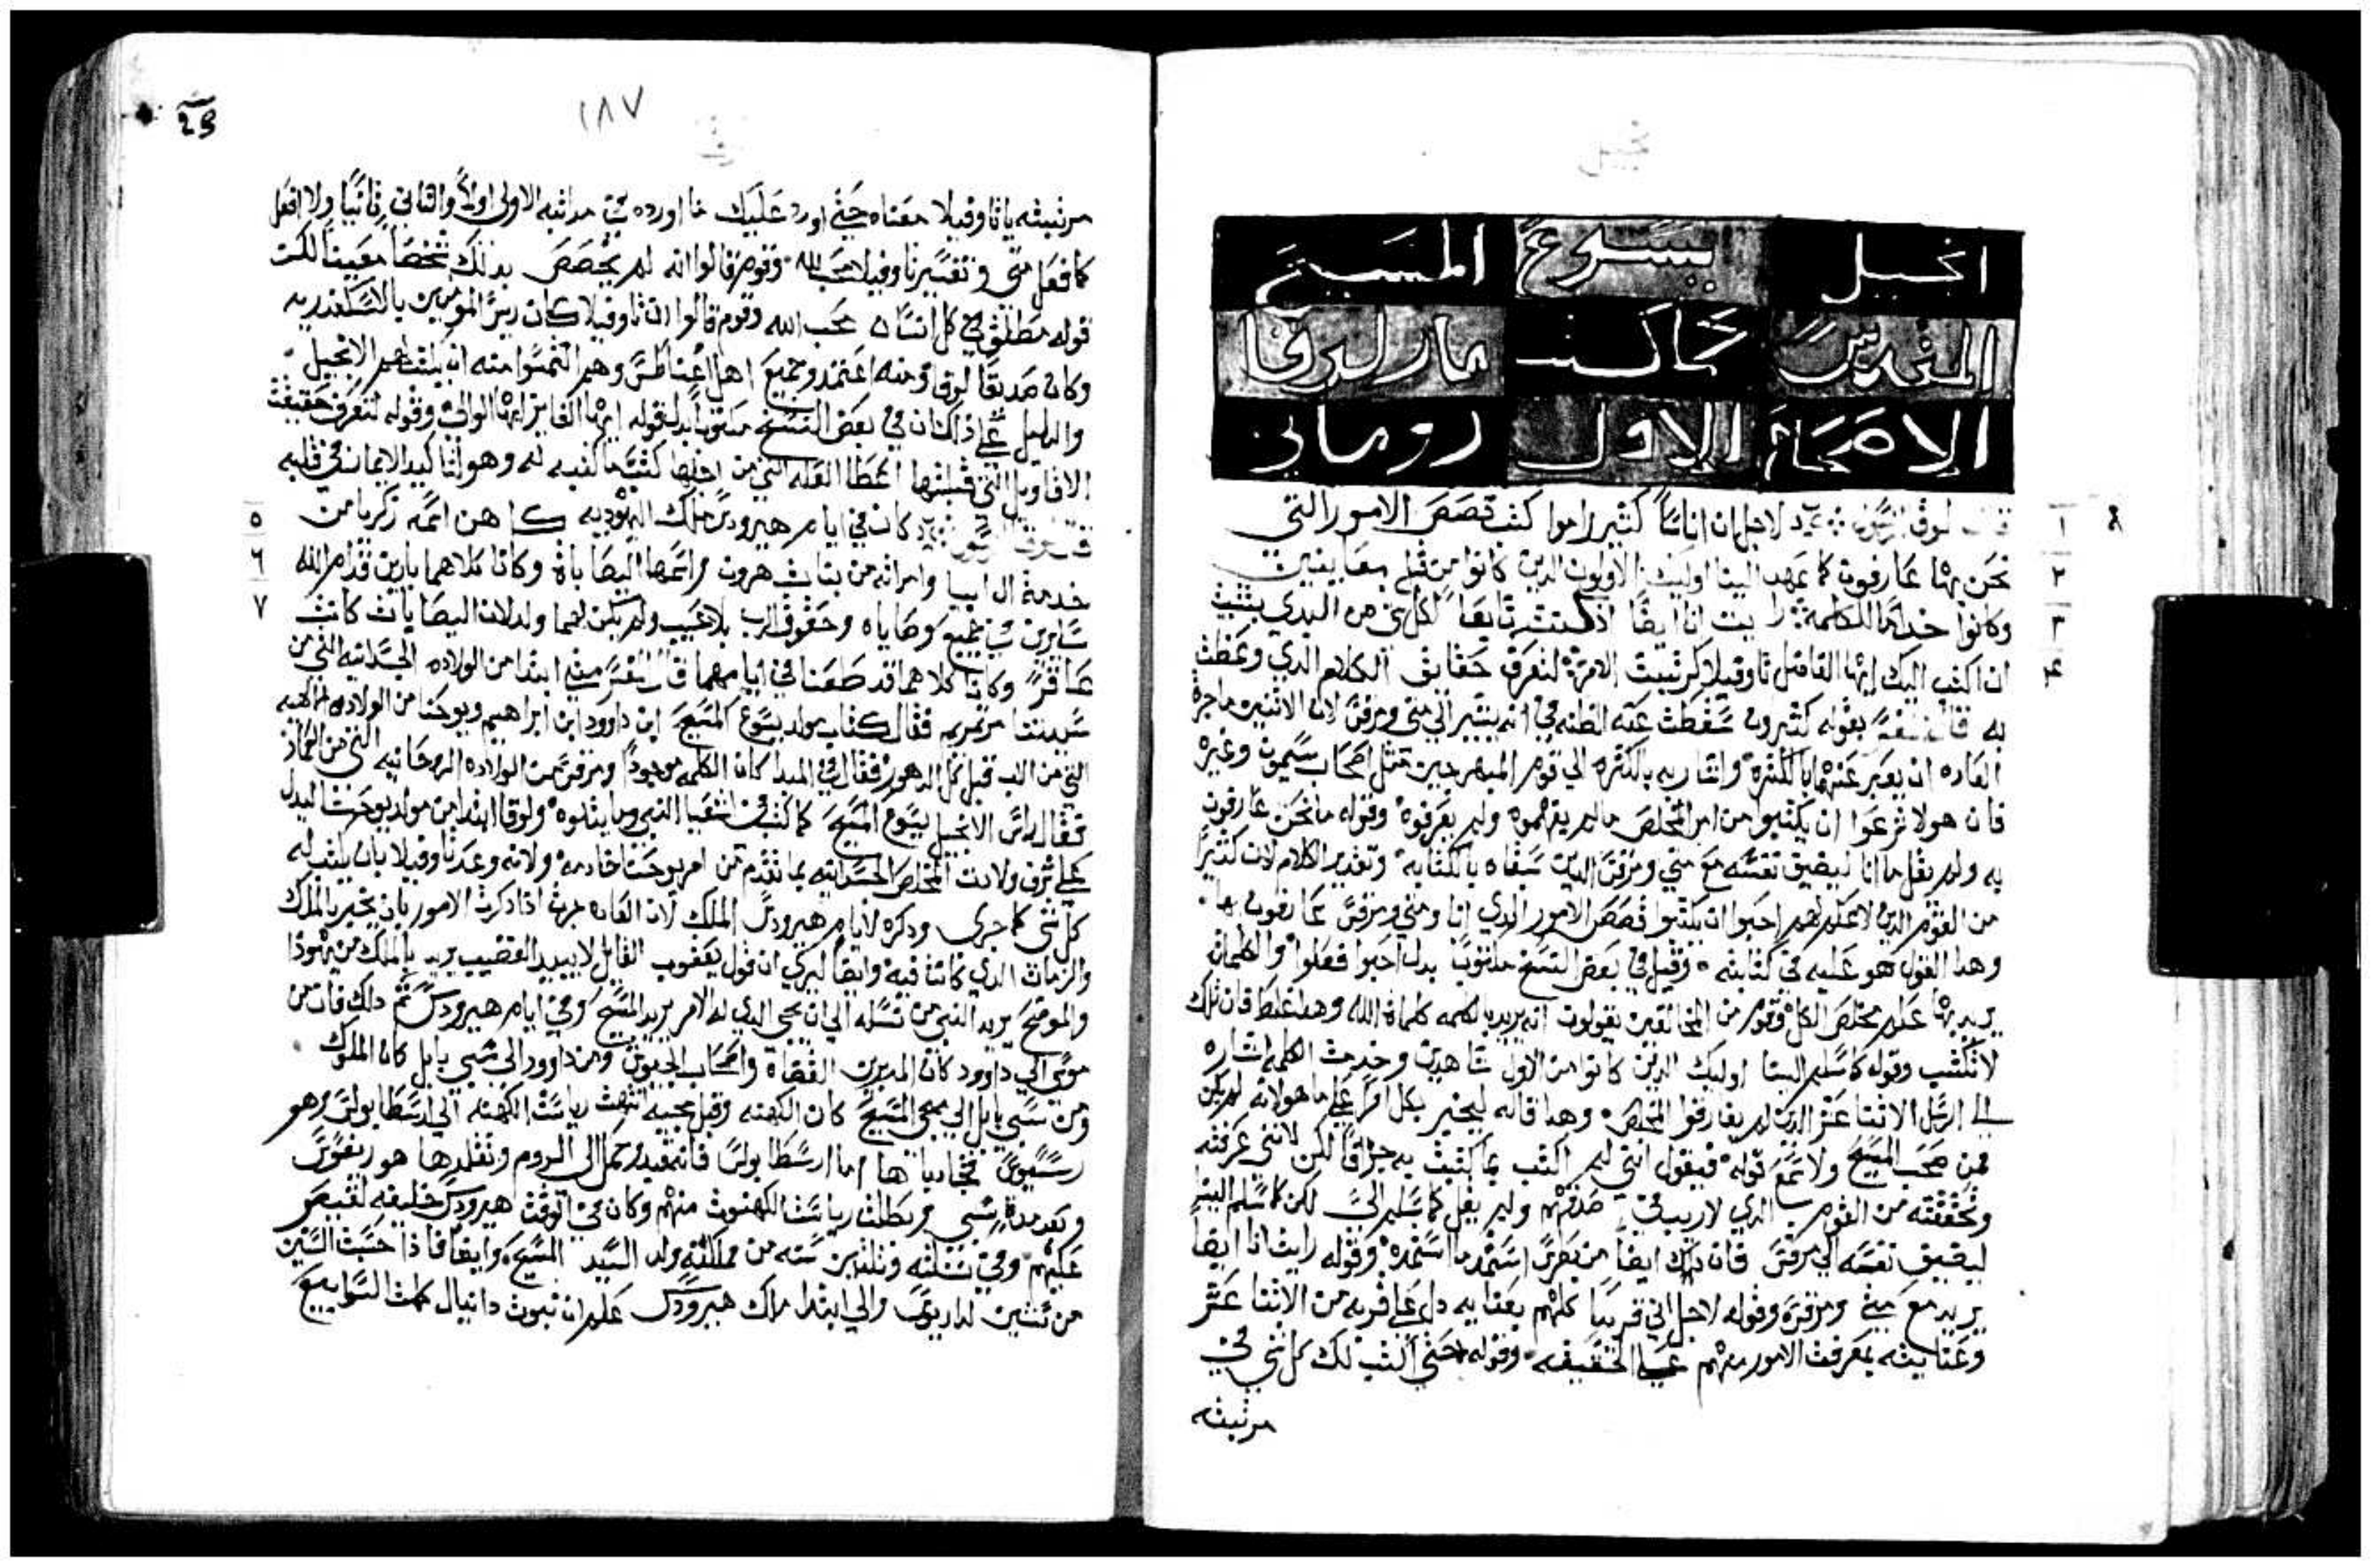 انجيل يسوع المسيح
المقدس كما كتب مار لوقا
الاصحاح الاول روماني
لوقا د لاجل ان اناسًا كثير راموا كتب قصص الامور التي
نحن بها عارفون كما عهد الينا اوليك الاولون الدين كانوا من قبل معاينين
وكانوا خدامًا للكلمة رايت انا ايضًا اذ كنت تابعًا لكل شي من البدي بتثبت
ان اكتب اليك ايها الفاضل تاوفيلا كرتبت الامرة لتعرف حقايق الكلام الدي وعظت
به قال بقوله كثيرون سقطت عنه الظنه في انه يشير الي متي ومرقس لان الاثنين ما جرة
العاده ان يعبر عنهما بالكثرة واشار به بالكثره الي قوم المبهرجين مثل اصحاب سيمون وغيره
فان هولا شرعوا ان يكتبوا من امر المخلص ما لم يفهموه ولم يعرفوه وقوله ما نحن عارفون
به ولم يقل ما انا ليضيق نفسه مع متي ومرقس الدين سبقاه بالكتابه وتقدير الكلام لان كثيرًا
من القوم الدين لا علم لهم احبوا ان يكتبوا قصص الامور الدي انا ومتي ومرقس عارفون بها
وهدا القول هو عليه في كتابته وقيل في بعض النسخ مكتوب بدل احبوا فعلوا والكلمات
يريد بها علم مخلص الكل وقوم من المخالفين يقولون انه يريد بالكلمه كلماة الله وهدا غلط فان تلك
لا تكتب وقوله كما سلم الينا اوليك الدين كانوا من الاول شاهدين وخدمت الكلمه اشاره
الي الرسل الاثنا عشر الدين لم يفارقوا المخلص وهدا قاله ليخبر بكل امرًا علي ما هو لانه لم يكن
ممن صحب المسيح ولا سمع قوله فيقول انني لم اكتب بما كتبت به جزافًا لكن لانني عرفته
وتحققته من القوم الدي لا ريب في صدقهم ولم يقل كما سلم اليَّ لكن كما سلم الينا
ليضيق نفسه الي مرقس فان داك ايضًا من بطرس استمد ما استمده وقوله رايت انا ايضًا
يريد مع متي ومرقس وقوله لاجل اني قريبًا كلهم بعنايه دل علي قربه من الاثنا عشر
وعنايته بمعرفت الامور منهم علي الحقيقه وقوله حتي اكتب لك كل شي في
مرتبته
١
٢
٣
٤
29
١٨٧
مرتبته يا تاوفيلا معناه حتي اورد عليك ما اورده في مراتبه الاولي اولاً والتاني ثانيًا ولا افعل
كما فعل متي وتفسير تاوفيلا محب الله وقوم قالوا انه لم يخصص بدلك شخصًا معينًا لكن
قوله مطلق في كل انسان محب الله وقوم قالوا ان تاوفيلا كان ريس المومنين بالاسكندريه
وكان صديقًا لوقا ومنه اعتمد وجميع اهل وهم التمسوا منه ان يكتب لهم الانجيل
والدليل علي داك ان في بعض النسخ مكتوبًا بدل قوله ايها الفايز ايها الوالي وقوله لتعرف حقيقت
الاقاويل التي قبلتها اعطا العله التي من اجلها كتب ما كتبه له وهو لتاكيد الايمان في قلبه
كان في ايام هيرودس ملك اليهوديه كاهن اسمه زكريا من
خدمة ال ابيا وامراته من بنات هرون واسمها اليصاباة وكانا كلاهما بارين قدام الله
سايرين في جميع وصاياه وحقوق الرب بلا عيب ولم يكن لهما ولد لان اليصابات كانت
عاقرً وكانا كلاهما قد طعنا في ايامهما قال المفسر متي ابتدا من الولاده الجسدانيه التي من
سيدتنا مرتمريم فقال كتاب مولد يسوع المسيح ابن داوود ابن ابراهيم ويوحنا من الولاده الالهيه
التي من الاب قبل كل الدهور فقال في المبدا كان الكلمه موجودًا ومرقس من الولاده الروحانيه التي من العماد
فقال راس الانجيل يسوع المسيح كما كتب في اشعيا النبي وما يتلوه ولوقا ابتدا من مولد يوحنا ليدل
علي شرف ولادت المخلص الجسدانيه بما تقدم من امر يوحنا خادمه ولانه وعد تاوفيلا بان يكتب له
كل شي كما جري ودكره لايام هيرودس الملك لان العاده جرت ادا دكرت الامور بان يخبر بالملك
والزمان الدي كانت فيه وايضًا ليري ان قول يعقوب القايل لا يبيد القضيب يريد به الملك من يهودا
والموضح يريد النبي من نسله الي ان يجي الدي له الامر يريد المسيح وفي ايام هيرودس تم دلك فان من
موسي الي داوود كان المدبرين القضاة واصحاب الجيوش ومن داوود الي سبي بابل كان الملوك
ومن سبي بابل الي مجي المسيح كان الكهنه وقبل مجيه انتهت رياست الكهنه الي ارسطابولس وهو
اما ارسطابولس فانه قيد وحمل الي الروم وتقلدها هو
وبعد مده سبي وبطلت رياست الكهنوت منهم وكان في الوقت هيرودس خليفه لقيصر
عليهم وفي سنة وتلتين سنه من مملكته ولد السيد المسيح وايضًا فادا حسبت السنين
من لداريوس والي ابتدا ملك هيرودس علم ان نبوت دانيال كملت السوابيع
٥
٦
٧